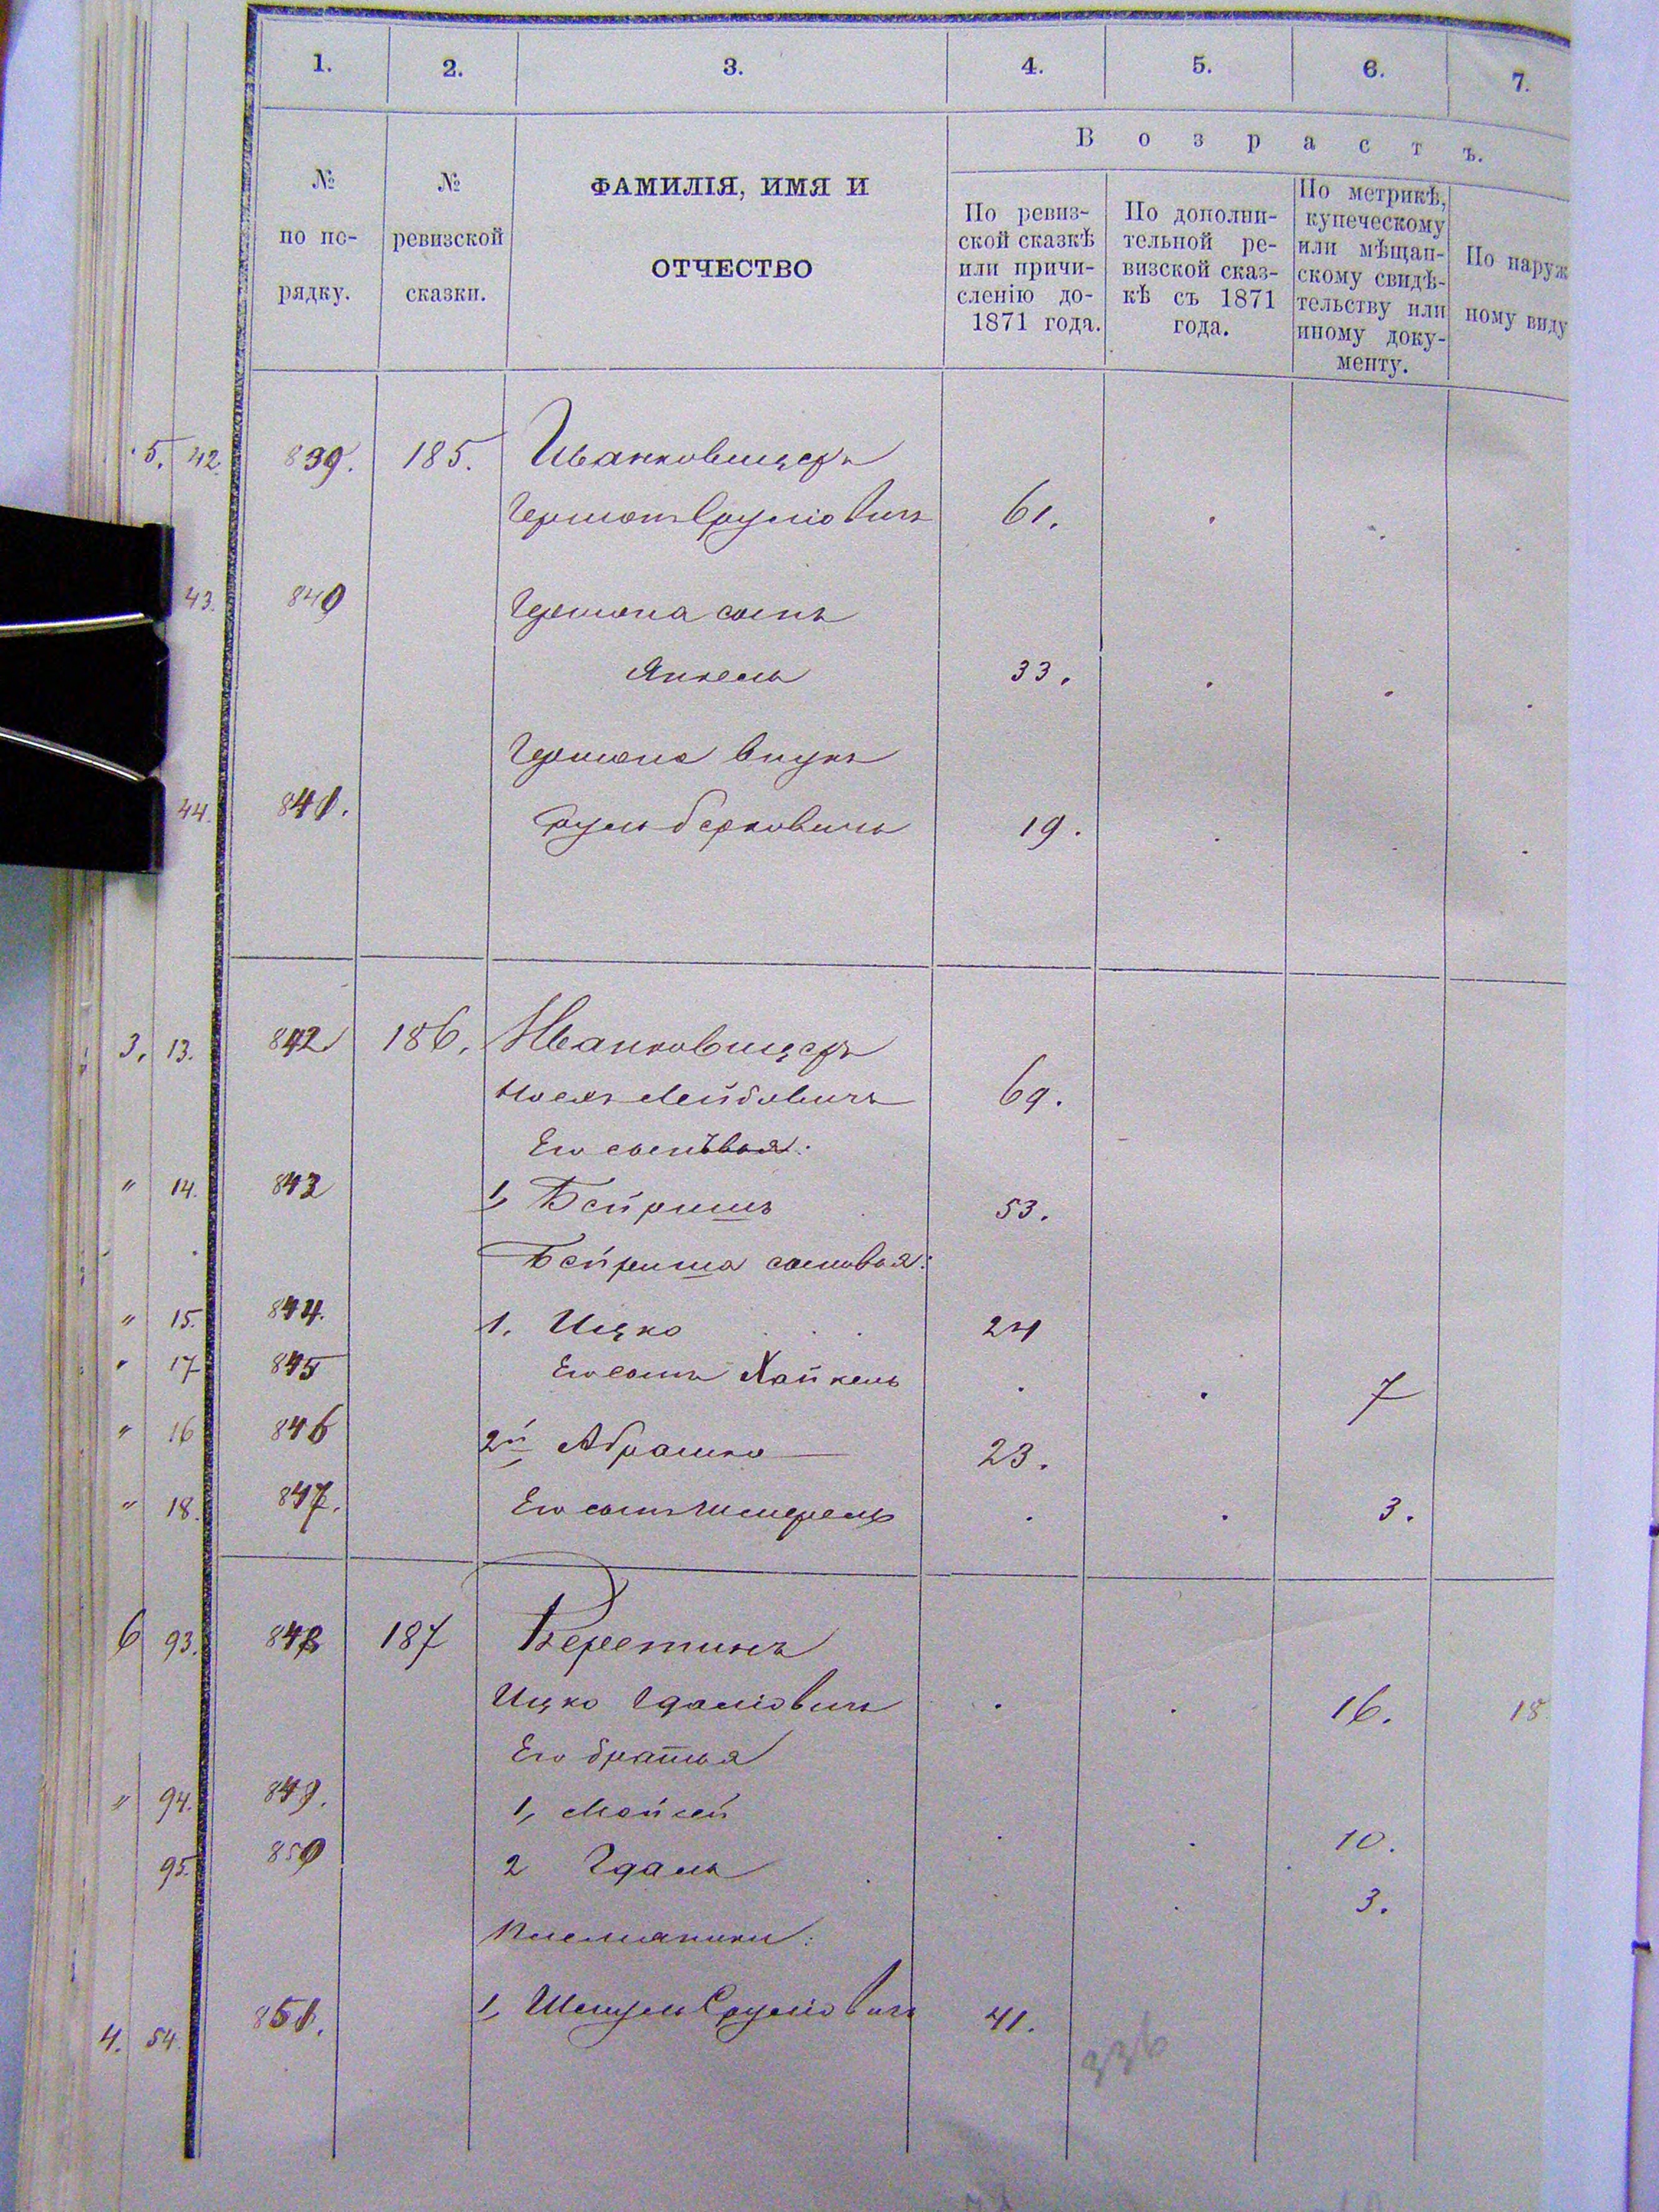 1. 2. 3. 4. 5. 6. 7.
Возрастъ.
№ по по-рядку.
№ ревизской сказки.
ФАМИЛІЯ, ИМЯ И
ОТЧЕСТВО
По ревиз-
ской сказкѣ
или причи-
сленію до-
1871 года.
По дополни-
тельной ре-
визской сказ-
кѣ съ 1871
года.
По метрикѣ,
купеческому
или мѣщан-
скому свидѣ-
тельству или
иному доку-
менту.
По наруж
ному виду
5. 42. 839. 185. Иванковицеръ
Гершонъ Сруліовичъ 61.
43. 840 Гершона сынъ
Янкель 33.
Гершона внукъ
44. 841. Сруль Берковичъ 19.
3. 13. 842 186. Иванковицеръ
Лейбовичъ 69.
Его сыновья:
" 14. 843 1, Бейришъ 53.
Бейриша сыновья:
" 15. 844. 1. Ицко 24
" 17 845 Его сынъ Хайкель 7
" 16 846 2й, Абрашко 23.
" 18. 847. Его сынъ Шмерель 3.
6 93. 848 187 Веретинъ
Ицко Гдаліовичъ 16. 18
Его братья
" 94. 849. 1, Мойсей 10.
95. 850 2 Гдаль 3.
Племянники:
4. 54. 851. 1, Шмуль Сруліовичъ 41.
336